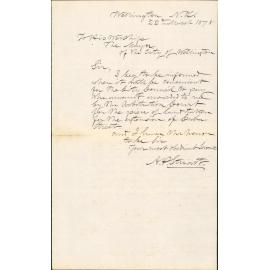 Wellington N.Z.
22nd March 1878
To His Worship
The Mayor
of the City of Wellington
Sir,
I beg to be informed
when it will be convenient
for the City Council to pay
the amount awarded to me
by the Arbitration Court
for the piece of land taken
for the extension of Cuba
Street
and I have the honor
to be Sir
Your most obedient Servant